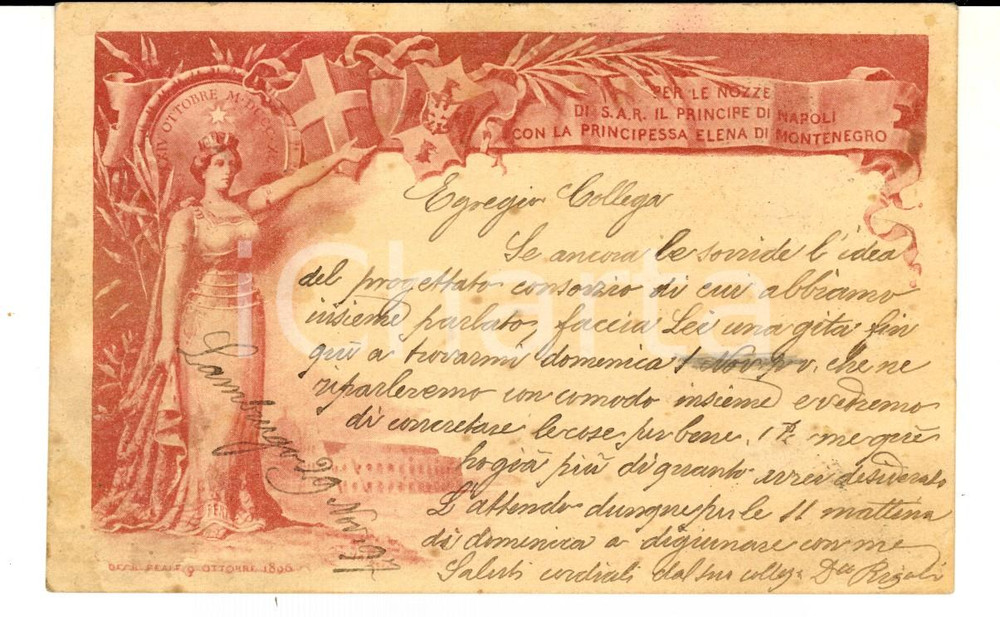 XIV OTTOBRE M·DCCC
PER LE NOZZE
DI S.A.R. IL PRINCIPE DI NAPOLI
CON LA PRINCIPESSA ELENA DI MONTENEGRO
Egregio Collega
Se ancora le sorride l'idea
del progettato consorzio di cui abbiamo
insieme parlato, faccia Lei una gita fin
quì a trovarmi domenica 1 Nov, che ne
riparleremo con comodo insieme e vedremo
di concretare le cose per bene.
ho già più di quanto avrei desiderato
L'attendo dunque per le 11 mattina
di domenica a digiunare con me
Saluti cordiali dal suo collega
Lamburgo 29
FERT
DECR. REALE 9 OTTOBRE 1896
iCharta